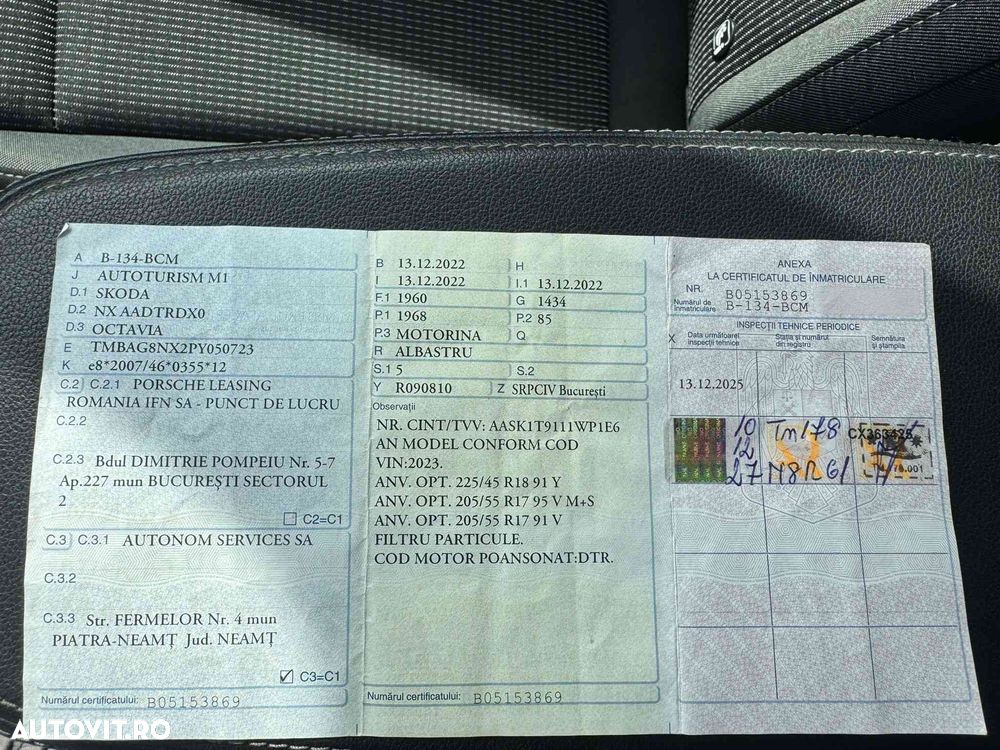 A B-134-BCM
J AUTOTURISM M1
D.1 SKODA
D.2 NX AADTRDX0
D.3 OCTAVIA
E TMBAG8NX2PY050723
K e8*2007/46*0355*12
C.2 C.2.1 PORSCHE LEASING
ROMANIA IFN SA - PUNCT DE LUCRU
C.2.2
C.2.3 Bdul DIMITRIE POMPEIU Nr. 5-7
Ap.227 mun BUCUREȘTI SECTORUL
2
C2=C1
C.3 C.3.1 AUTONOM SERVICES SA
C.3.2
C.3.3 Str. FERMELOR Nr. 4 mun
PIATRA-NEAMȚ Jud. NEAMȚ
C3=C1
Numărul certificatului: B05153869
B 13.12.2022 H
I 13.12.2022 I.1 13.12.2022
F.1 1960 G 1434
P.1 1968 P.2 85
P.3 MOTORINA Q
R ALBASTRU
S.1 5 S.2
Y R090810 Z SRPCIV București
Observații
NR. CINT/TVV: AASK1T9111WP1E6
AN MODEL CONFORM COD
VIN:2023.
ANV. OPT. 225/45 R18 91 Y
ANV. OPT. 205/55 R17 95 V M+S
ANV. OPT. 205/55 R17 91 V
FILTRU PARTICULE.
COD MOTOR POANSONAT:DTR.
Numărul certificatului: B05153869
ANEXA
LA CERTIFICATUL DE ÎNMATRICULARE
NR. B05153869
Numărul de înmatriculare B-134-BCM
INSPECȚII TEHNICE PERIODICE
X Data următoarei inspecții tehnice Stația și numărul din registru Semnătura și ștampila
13.12.2025
10 Tm178 CX363425
12
27
AUTOVIT.RO